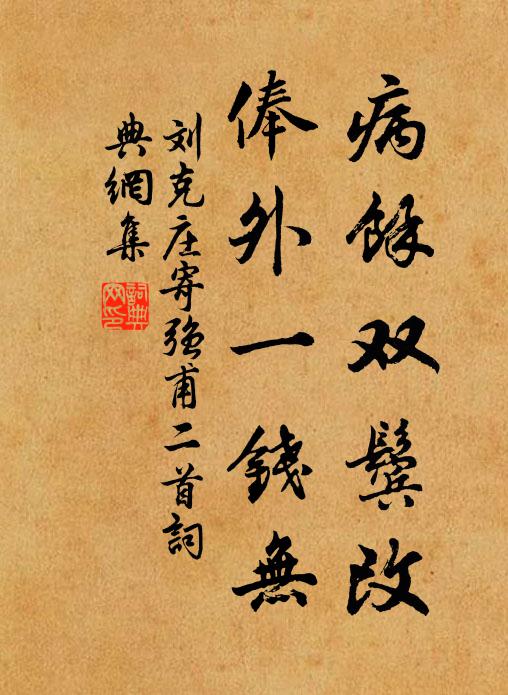 病餘双鬓改
俸外一錢無
刘克庄寄强甫二首詞
典網集
詞典
网印